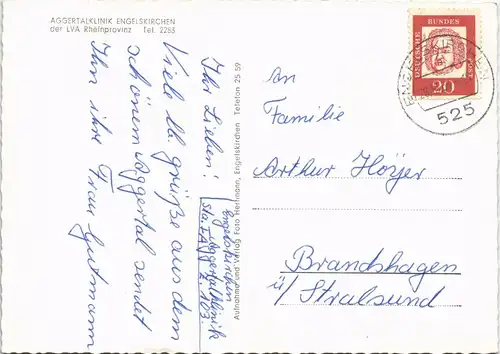 AGGERTALKLINIK ENGELSKIRCHEN
der LVA Rheinprovinz Tel. 2283
Ihr Lieben!
Viele lb. Grüße aus dem
schönem Aggertal sendet
Ihnen ihre Frau Gutmann
Engelskirchen
Aggertalklinik
Sta. I A
Aufnahme und Verlag Foto Hermann, Engelskirchen Telefon 25 59
DEUTSCHE BUNDESPOST
20
ENGELSKIRCHEN
525
An
Familie
Arthur Höyer
Brandshagen
ü/ Stralsund